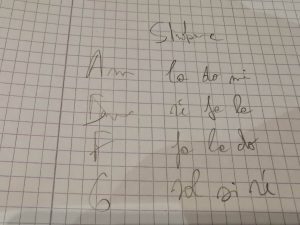 Am la do mi
Dm ré fa la
F fa la do
G sol si ré